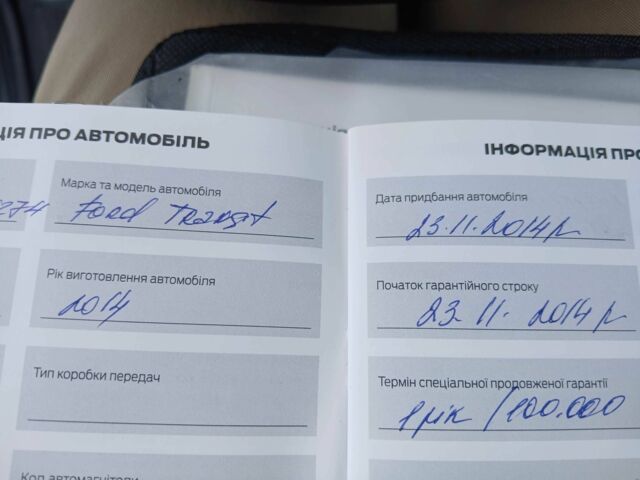 ЦІЯ ПРО АВТОМОБІЛЬ
Марка та модель автомобіля
Ford Transit
Рік виготовлення автомобіля
2014
Тип коробки передач
Код автомагнітоли
ІНФОРМАЦІЯ ПРО
Дата придбання автомобіля
23.11.2014 р
Початок гарантійного строку
23.11.2014 р
Термін спеціальної продовженої гарантії
1 рік /100.000